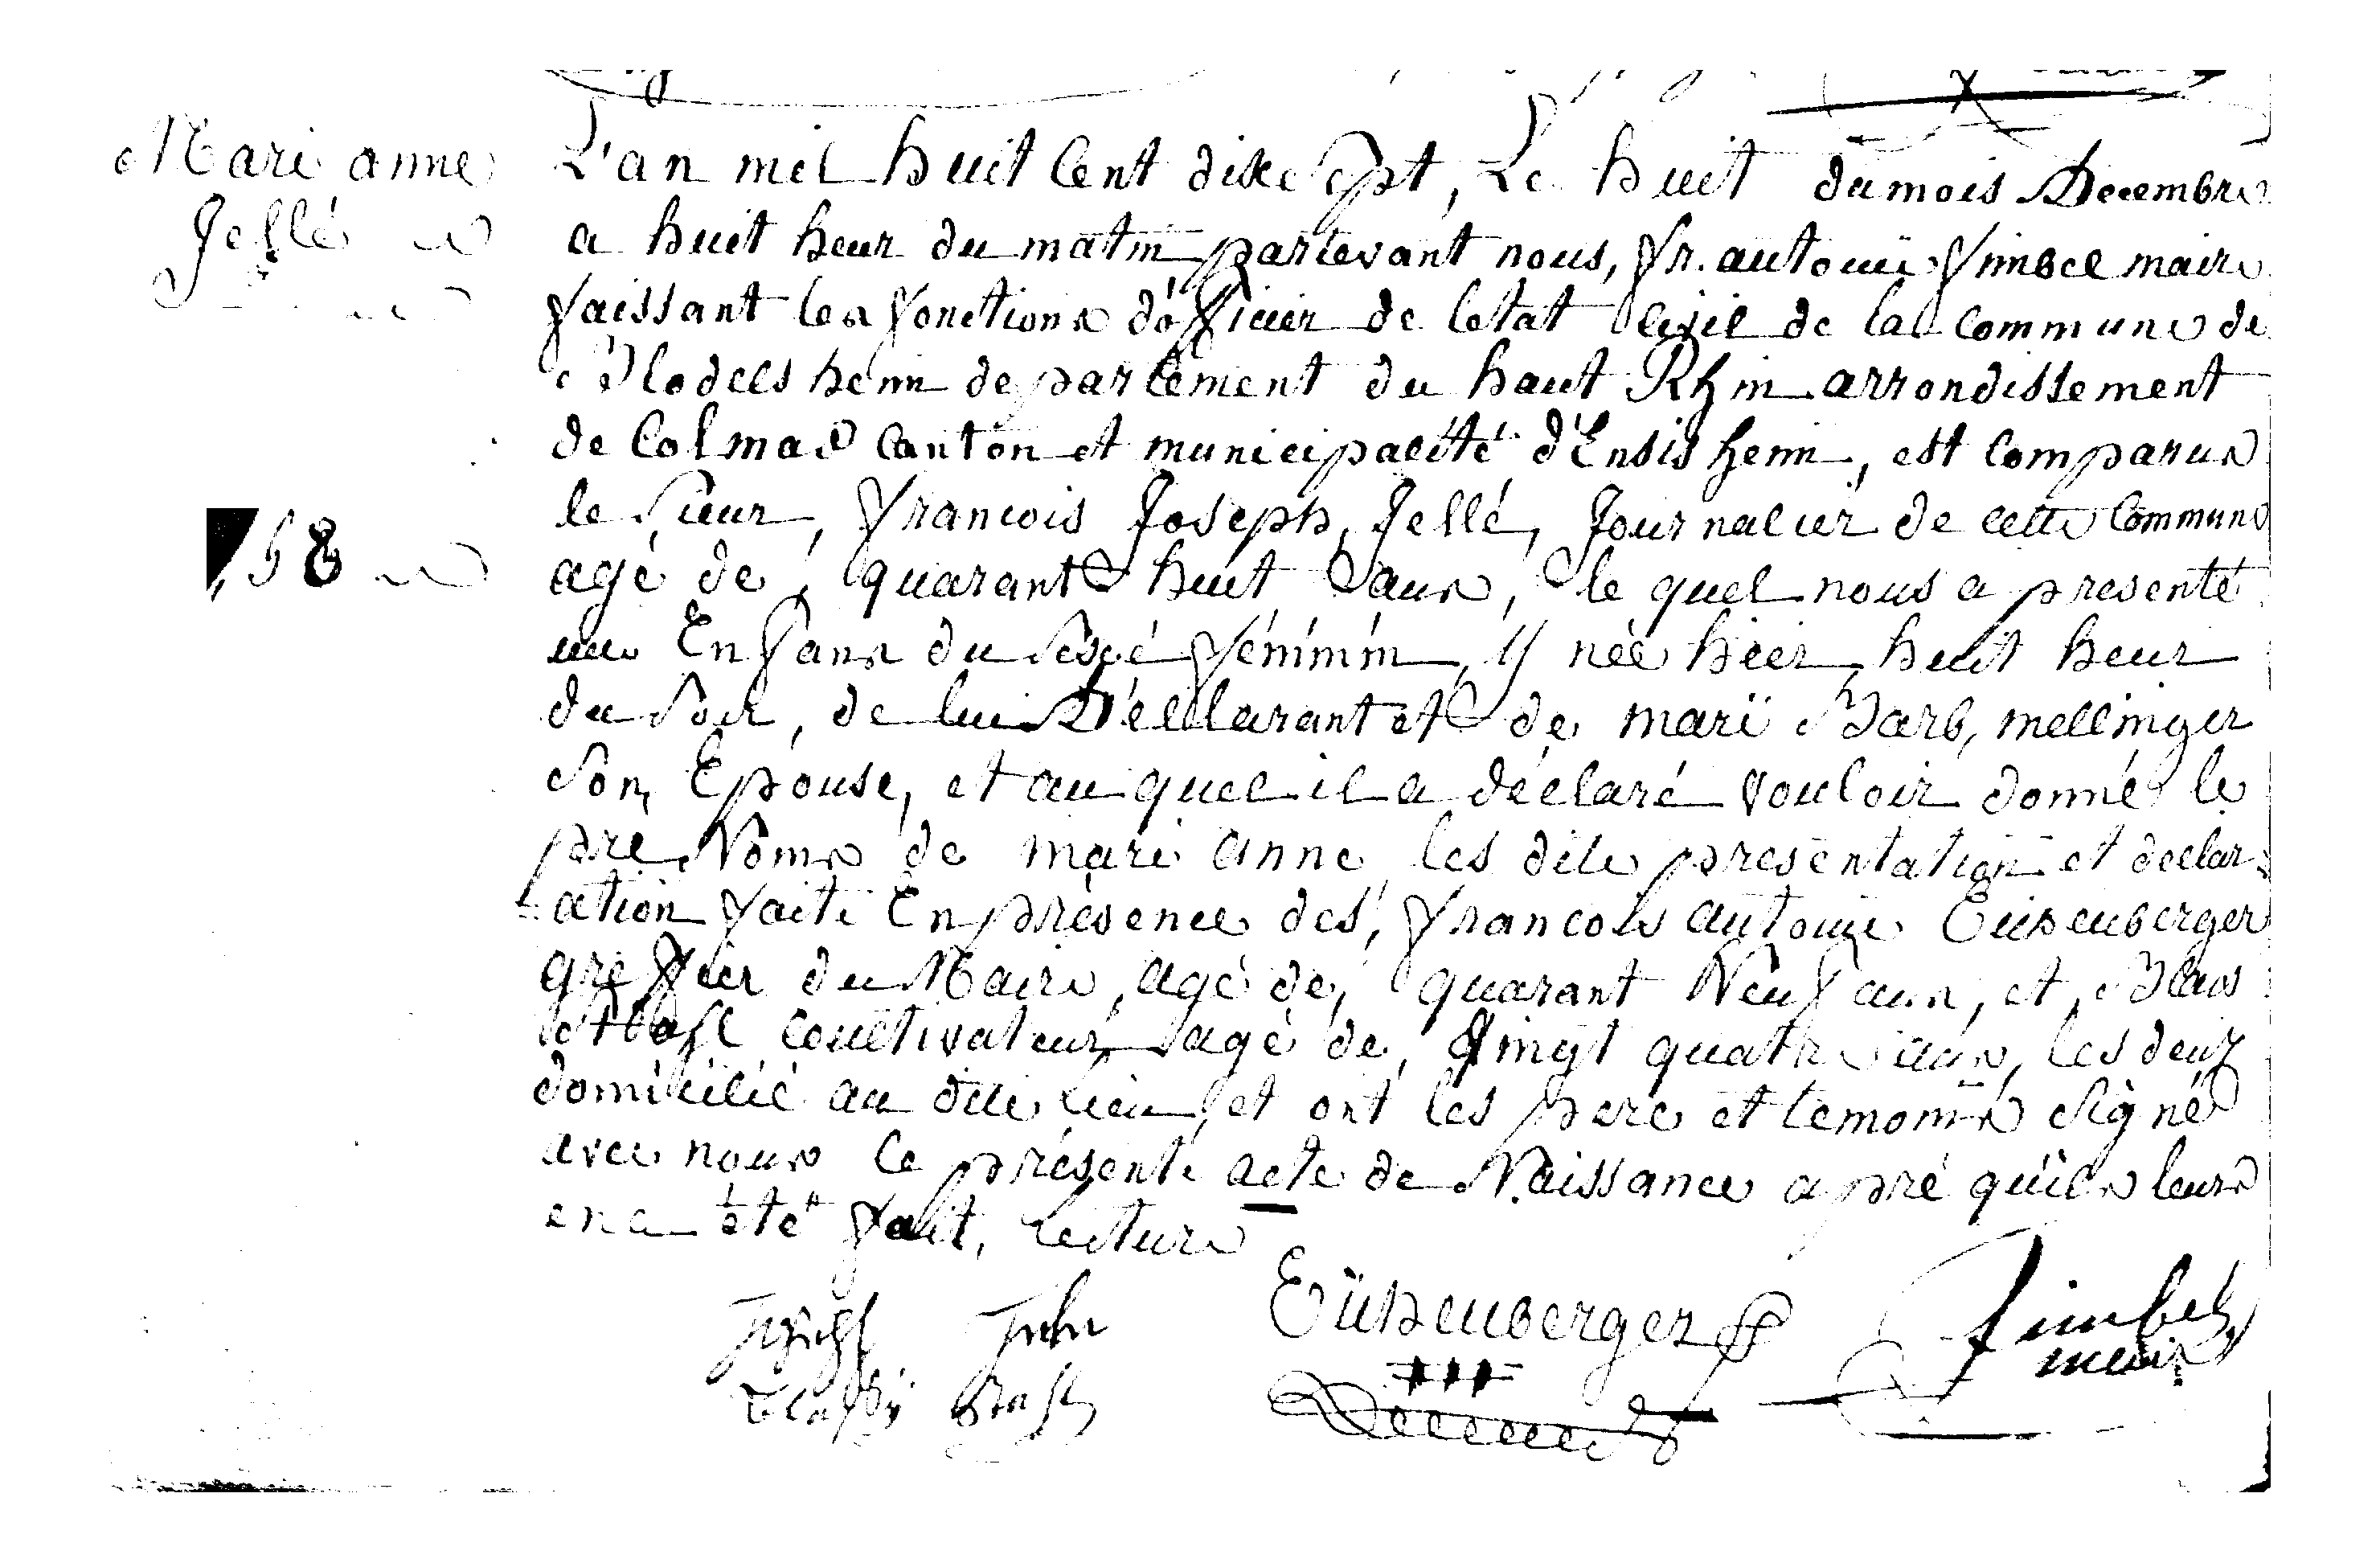 Mari anne
Jellé
58
L'an mil huit Cent dixe Sept, Le huit du mois Decembre
a huit heur du matin pardevant nous, fr. antoine fimbel maire
faissant les fonctions d'officier de letat Civil de la Commune de
Blodelsheim departement du haut Rhin arrondissement
de Colmar Canton et municipalité d'Ensisheim, est Comparus
le Sieur, francois Joseph, Jellé, Journalier de cette Commune
agé de, quarante huit ans, le quel nous a presenté
une Enfans du Sexé féminin, y née hier, huit heur
du Soir, de lui Déclarant et de mari Barb, mellinger
Son, Epouse, et au quel il a déclaré vouloir donné le
pre Noms de mari anne les dite presentation et declar=
=ation faite En présence des, francois antoine
greffier du Maire, agé de, quarant Neuf ans, et Blais
coultivateur agé de, vingt quatre ans, les deux
domicilié au dite lieu, et ont les pere et temoins Signé
avec nous le présente acte de Naissance apré qu'ils leurs
en a été fait, Lecture
fimbel
maire